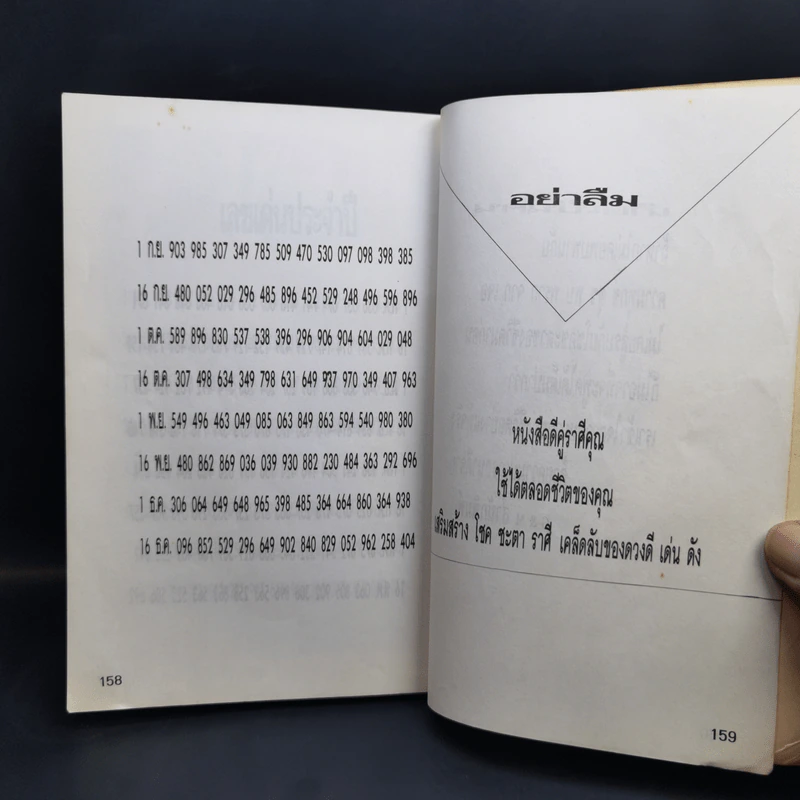 1 ก.ย. 903 985 307 349 785 509 470 530 097 098 398 385
16 ก.ย. 480 052 029 296 485 896 452 529 248 496 596 896
1 ต.ค. 589 896 830 537 538 396 296 906 904 604 029 048
16 ต.ค. 307 498 634 349 798 631 649 937 970 349 407 963
1 พ.ย. 549 496 463 049 085 063 849 863 594 540 980 380
16 พ.ย. 480 862 869 036 039 930 882 230 484 363 292 696
1 ธ.ค. 306 064 649 648 965 398 485 364 664 860 364 938
16 ธ.ค. 096 852 529 296 649 902 840 829 052 962 258 404
158
อย่าลืม
หนังสือดีคู่ราศีคุณ
ใช้ได้ตลอดชีวิตของคุณ
เสริมสร้าง โชค ชะตา ราศี เคล็ดลับของดวงดี เด่น ดัง
159